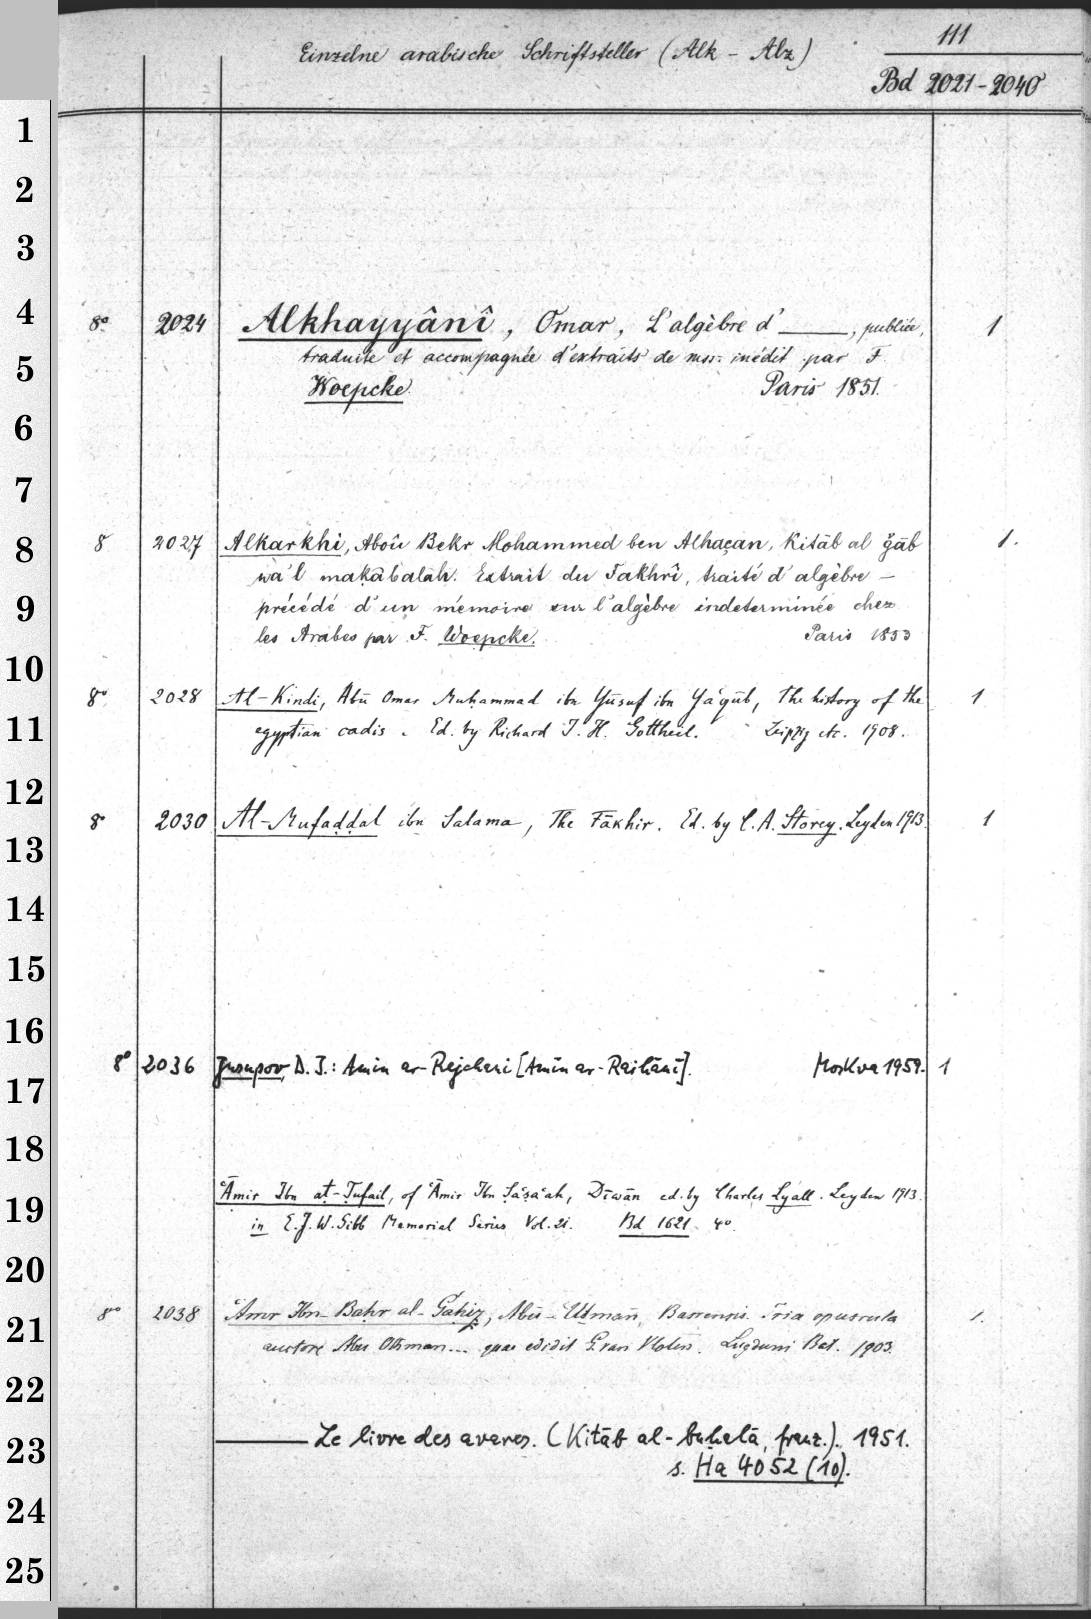 111
Einzelne arabische Schriftsteller (Alk - Alz)
Bd 2021-2040
1
2
3
4
8o 2024 Alkhayyânî, Omar, L'algèbre d' ———, publiée, 1
5
traduite et accompagnée d'extraits de mss. inédit par F.
Woepcke. Paris 1851.
6
7
8
8 2027 Alkarkhi, Aboû Bekr Mohammed ben Alhaçan, Kitāb al ğāb 1.
wa'l makâbalah. Extrait du Fakhrî, traité d'algèbre —
9
précédé d'un mémoire sur l'algèbre indeterminée chez
les Arabes par F. Woepcke. Paris 1853
10
8o 2028 Al-Kindi, Abū Omar Muḥammad ibn Yūsuf ibn Ya'qūb, The history of the 1
11
egyptian cadis. Ed. by Richard J. H. Gottheil. Leipzig etc. 1908.
12
8o 2030 Al-Mufaḍḍal ibn Salama, The Fākhir. Ed. by C. A. Storey. Leyden 1913. 1
13
14
15
16
8o 2036 Jusupov, D. J.: Amin ar-Rejchani [Amīn ar-Raiḥānī]. Moskva 1959. 1
17
18
19
ʿĀmir Ibn aṭ-Ṭufail, of ʿĀmir Ibn Ṣaʿṣaʿah, Dīwān ed. by Charles Lyall. Leyden 1913.
in E.J.W. Gibb Memorial Series Vol. 21. Bd 1621 4o.
20
8o 2038 ʿAmr Ibn-Baḥr al-Ǧāḥiẓ, Abū-ʿUṯmān, Basrensis. Tria opuscula 1.
21
auctore Abu Othman... quae edidit G. van Vloten. Lugduni Bat. 1903.
22
——— Le livre des avares. (Kitāb al-buḫalā, franz.). 1951.
23
s. Ha 4052 (10).
24
25